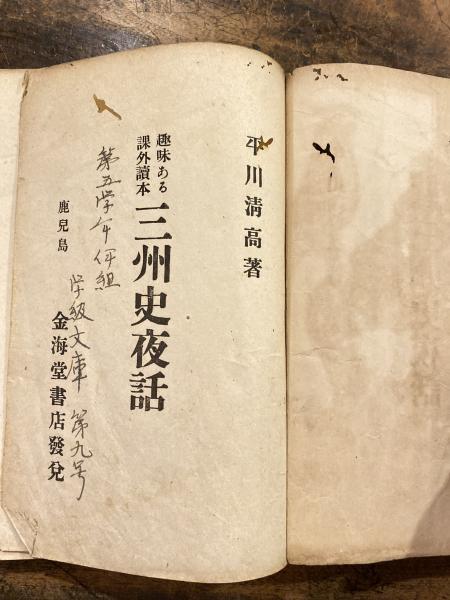 平川淸高著
趣味ある
課外讀本
三州史夜話
第五学年伊組
学級文庫 第九号
鹿兒島
金海堂書店發兌